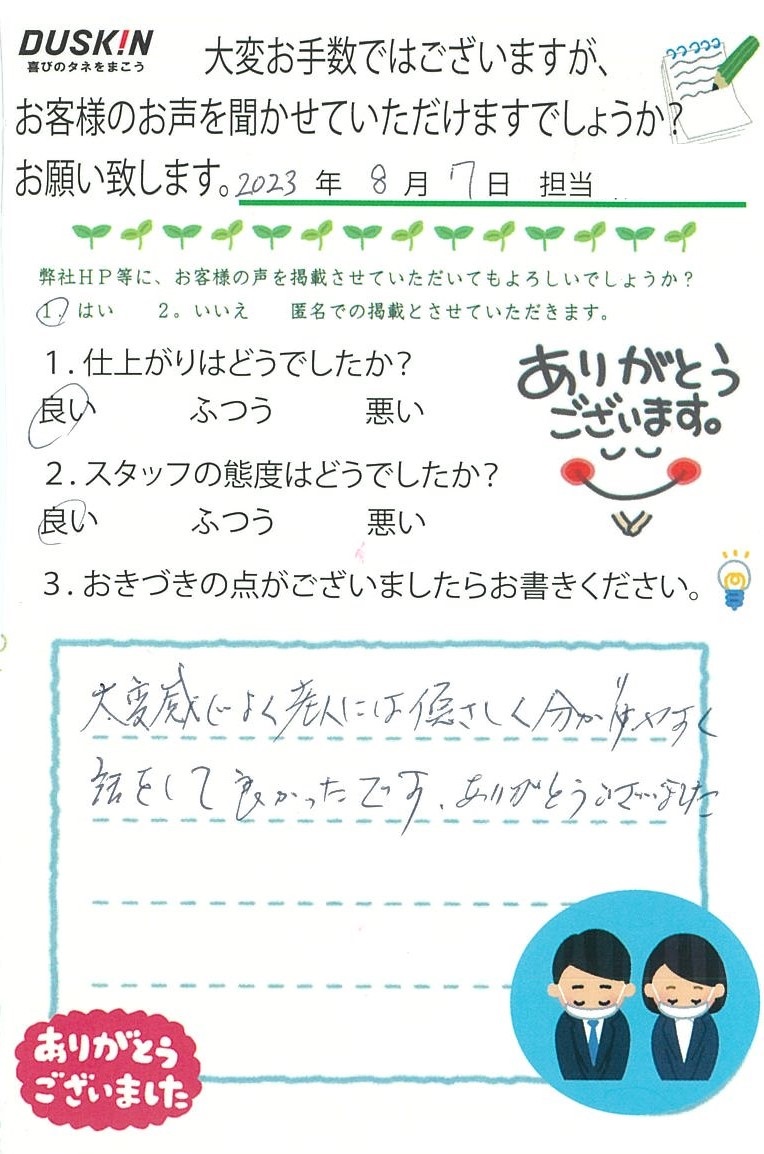 DUSK!N
喜びのタネをまこう
大変お手数ではございますが、
お客様のお声を聞かせていただけますでしょうか?
お願い致します。2023 年 8 月 7 日 担当
弊社HP等に、お客様の声を掲載させていただいてもよろしいでしょうか?
1. はい 2。いいえ 匿名での掲載とさせていただきます。
1.仕上がりはどうでしたか?
良い ふつう 悪い
ありがとう
ございます。
2.スタッフの態度はどうでしたか?
良い ふつう 悪い
3.おきづきの点がございましたらお書きください。
大変感じよく老人には優さしく分かりやすく
話をして良かったです、ありがとうございました
ありがとう
ございました